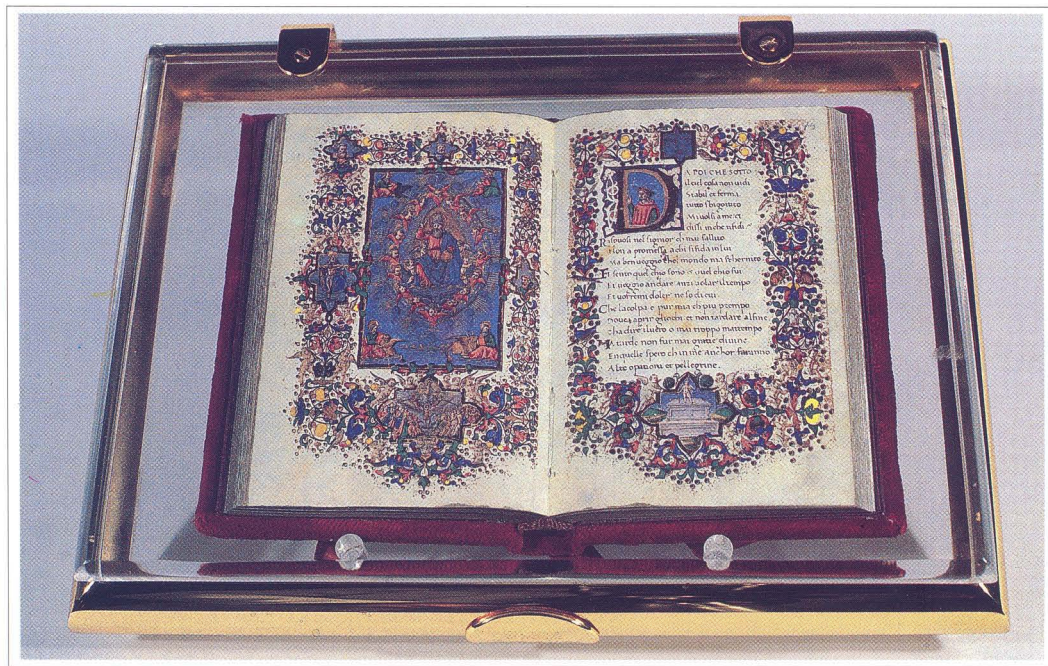 DA POI CHE SOTTO
il ciel cosa non vidi
Stabil et ferma
tutto sbigotito
Mi volsi a me et
dissi in che ti fidi
Risposi nel signor ch mai fallito
Non a promessa a chi si fida in lui
Ma ben ueggio chel mondo ma schernito
Et sento quel chio sono et quel chio fui
Et ueggio andare anzi uolar il tempo
Et uorrei ne so di cui
Che la colpa e pur mia ch piu p tempo
Douea aprir et non tardare al fine
Cha dire il uero o mai troppo mattempo
Ma tarde non fur mai gratie diuine
En quelle spero ch in me anchor faranno
Alte et pellegrine.